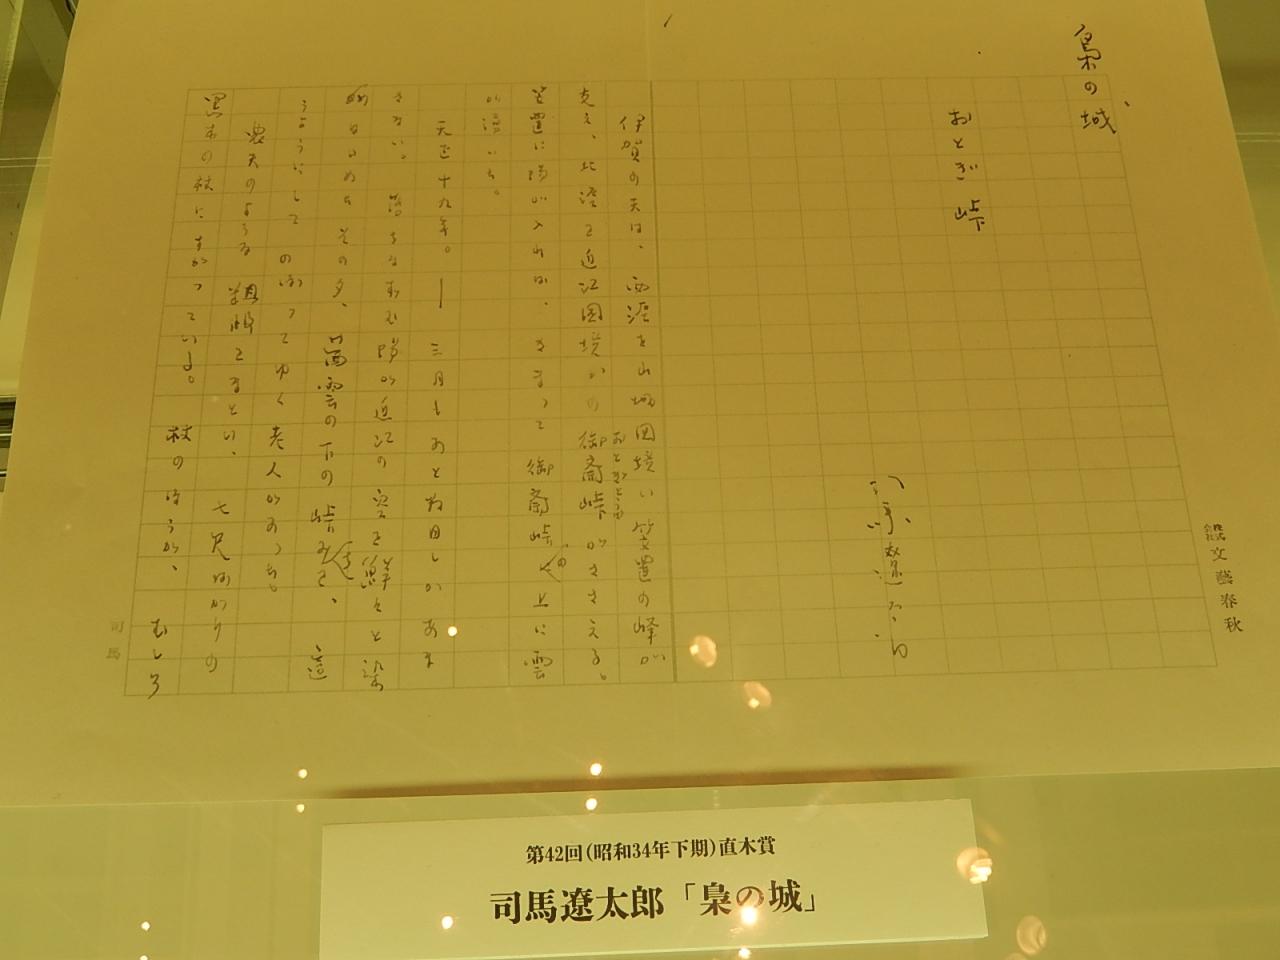 梟の城
おとぎ峠
司馬遼太郎
伊賀の天は、西涯を山城国境い笠置の峰が
支え、北涯を近江国境いの御斎峠がささえる。
おとぎとうげ
笠置に陽が入れば、きまって御斎峠の上に雲
が湧いた。
天正十九年。――三月もあと数日しかあま
さない。落ちなずむ陽が近江の空を鮮々と染
めはじめたその夕、茜雲の下の峠みちを、這
うようにしてのぼってゆく老人があった。
農夫のような粗服をまとい、七尺ばかりの
黒木の杖にすがっている。杖のほうが、むしろ
司馬
株式会社 文藝春秋
第42回(昭和34年下期)直木賞
司馬遼太郎「梟の城」